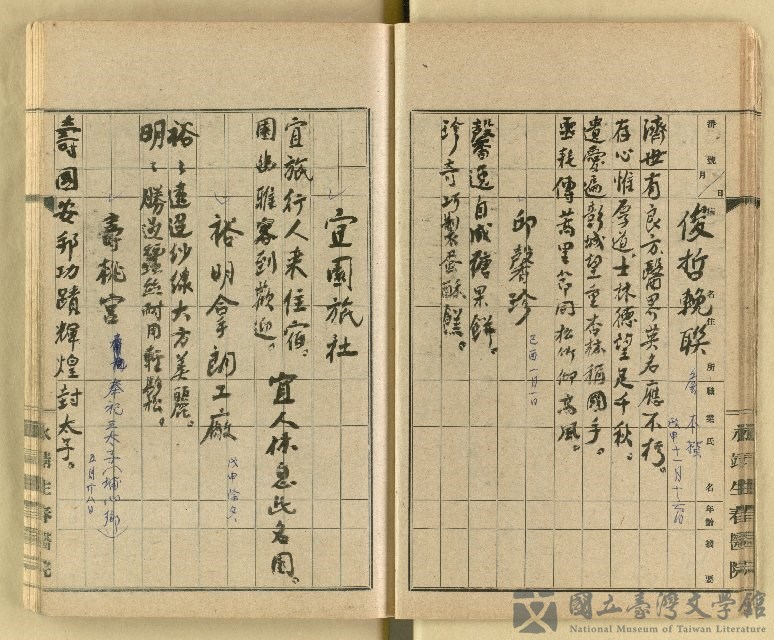 永靖生春醫院
番號 月 日 病名 住所 職業 氏名 年齡 摘要
俊哲輓聯
戊申十一月十六日
濟世有良方醫界英名應不朽。
存心惟厚道士林德望足千秋。
遺愛遍彰城望重杏林稱國手。
丞耗傳萬里節同松竹仰高風。
邱馨珍
己酉一月一日
馨逸自成糖果餅。
珍奇巧製蛋酥饈。
宜園旅社
宜旅行人来住宿。宜人休息此名園。
園幽雅客到歡迎。
裕明伞工廠
戊申
裕〻遠逞紗線大方美麗。
明〻勝過蠶絲耐用輕鬆。
壽桃宮 奉祀三太子(埔心鄉)
五月廿八日
壽國安邦功蹟輝煌封太子。
永靖生春醫院
國立臺灣文學館
National Museum of Taiwan Literature